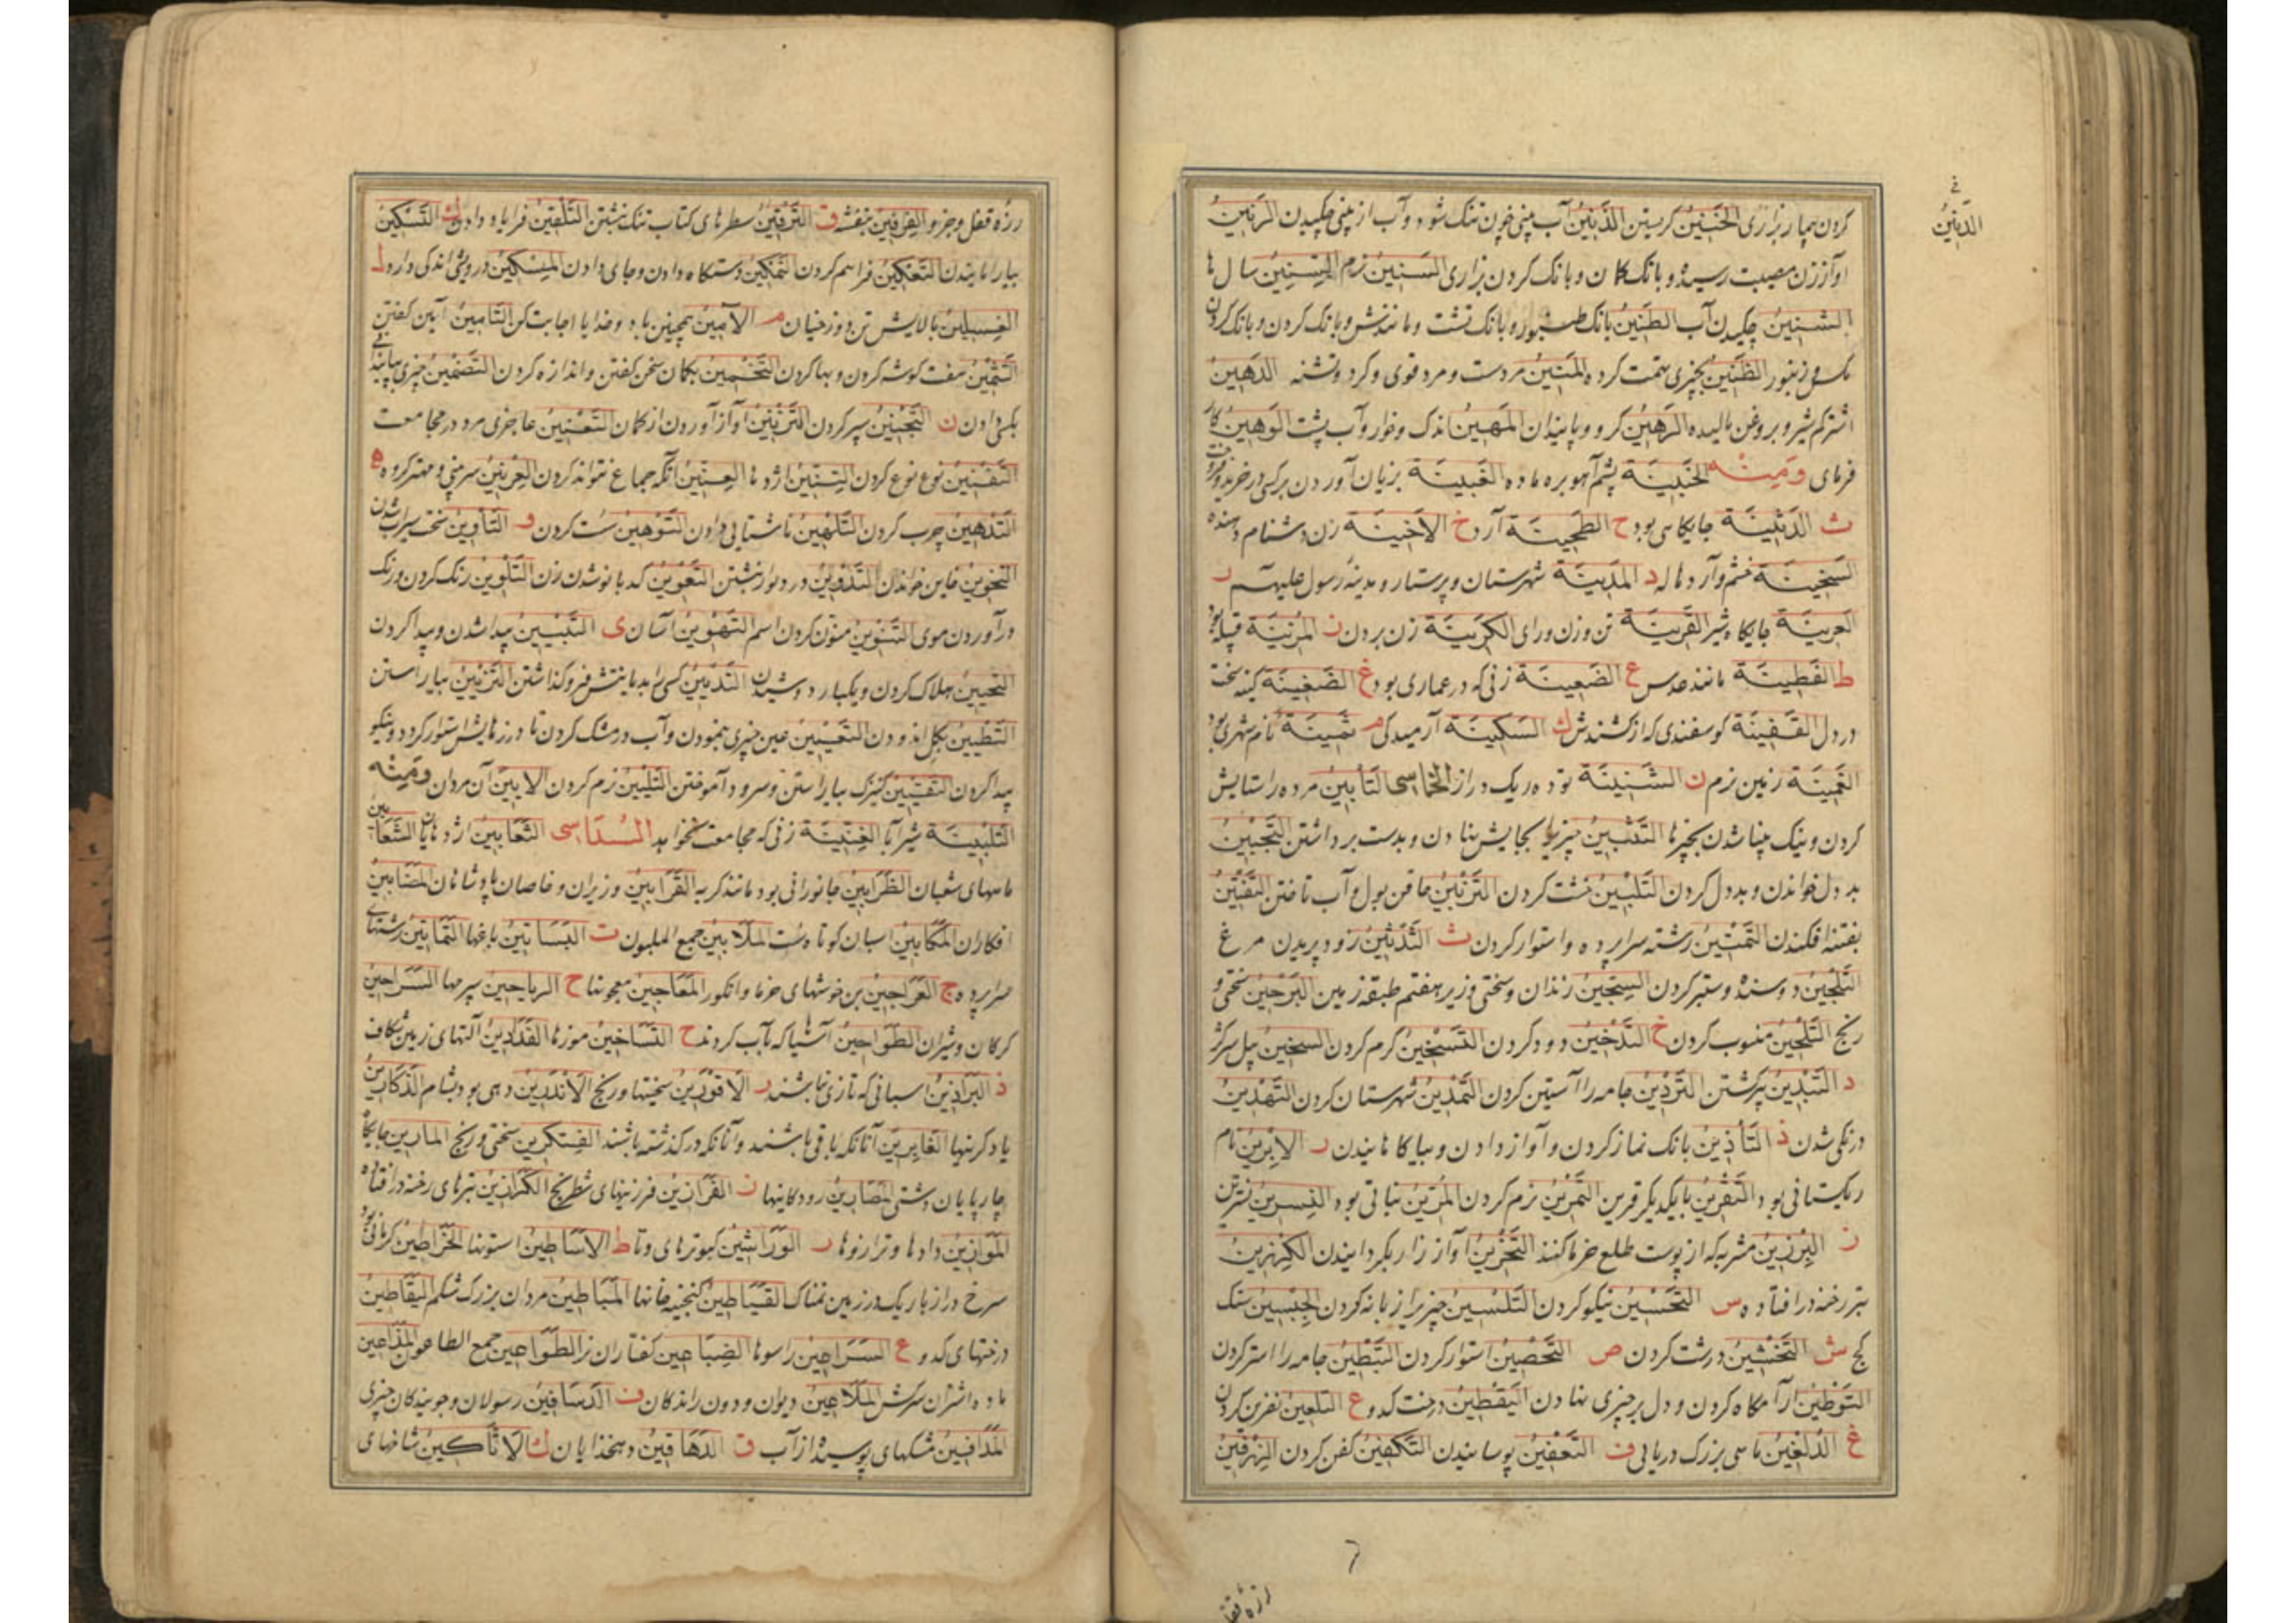 کردن بیمار بزاری الخنین کریستن الذنین آب بینی چون تنک شود و آب از بینی چکیدن الرنین
آواز زن مصیبت رسیده و بانک کمان و بانک کردن بزاری السنین نرم السنین سالها
الشنین چکیدن آب الطنین بانک طنبور و بانک تشت و مانندش و بانک کردن و بانک کردن
مکس و زنبور الظنین بچیزی تهمت کرده المتین مردست و مرد قوی و کرد و تشنه الدهین
اشتر کم شیر و بروغن مالیده الرهین کرو و پایندان المهین اندک و خوار و آب پشت الوهین کار
فرمای ومنه الخبینة پشم آهو بره ماده الغبینة بزیان آوردن بر کسی در خرید و فروخت
ث الدثینة جایکاهی بود ح الطحینة آرد خ الاخینة زن دشنام دهنده
السخینة خشم و آرد هاله د المدینة شهرستان و پرستار و مدینه رسول علیه ر
العرینة جایکاه شیر القرینة تن و زن و رای الکرینة زن بردن ز المزینة قبیله بود
ط القطینة مانند عدس ع الضعینة زنی که در عماری بود غ الضغینة کینه سخت
در دل القفینة کوسفندی که از کشندش ك السکینة آرمیدکی م ثمینة نام شهری بود
الغمینة زمین نرم ن الشنینة توده ریک دراز الخماسی التابین مرده را ستایش
کردن و نیک بینا شدن بچیزها التثبین چیزی بجایش نهادن و بدست برداشتن التجبین
بد دل خواندن و بد دل کردن التلبین خشت کردن التفتین
بفتنه افکندن التمتین رشته سراپرده و استوار کردن ث التدثین زود پریدن مرغ
التلجین دوسنده و ستبر کردن السجین زندان و سختی و زیر هفتم طبقه زمین البرحین سختی و
رنج التلحین منسوب کردن خ التدخین دود کردن التسخین کرم کردن السخین بیل سرکژ
د التبدین پیر کشتن التردین جامه را آستین کردن التمدین شهرستان کردن التهدین
درنکی شدن ذ التأذین بانک نماز کردن و آواز دادن و بیاکاهانیدن ر الابرین نام
ریکستانی بود التقرین با یکدیکر قرین التمرین نرم کردن المرین نباتی بود النسرین نسترن
ز البرزین مشربه که از پوست طلع خرما کنند التحزین آواز زار بکردانیدن الکرزین
تبر رخنه در افتاده س التحسین نیکو کردن التلسین چیزی را زبانه کردن الجبسین سنک
کج ش التخشین درشت کردن ص التحصین استوار کردن التبطین جامه را استر کردن
التوطین آرامکاه کردن و دل بر چیزی نهادن الیقطین درخت کدو ع التلعین نفرین کردن
غ الدلغین ماهی بزرک دریایی ف التعفین پوسانیدن التکفین کفن کردن الزرفین
فی
الدنین
٦
رزه قفل
رزه قفل و جز و الفرفین بنفشه ق الترقین سطرهای کتاب تنک نبشتن التلقین فرا یاد دادن ك التسکین
بیارامانیدن التعکین فراهم کردن التمکین دستکاه دادن و جای دادن المسکین درویش اندکی دارد ل
الغسلین پالایش تن دوزخیان م الآمین همچنین باد و خدایا اجابت کن التأمین آمین کفتن
التثمین هفت کوشه کردن و بها کردن التخمین بکمان سخن کفتن و اندازه کردن التضمین چیزی بپایندانی
بکسی دادن ن التجنین سپر کردن الترنین آواز آوردن از کمان التعنین عاجزی مرد در مجامعت
التفنین نوع نوع کردن التنین اژدها العنین آنکه جماع نتواند کردن العرنین سر بینی و مهتر کروه ه
التدهین چرب کردن التلهین ناشتایی دادن التوهین سست کردن و التأوین سخت سیراب شدن
التخوین خاین خواندن التدوین در دیوان نبشتن التعوین کدبانو شدن زن التلوین رنک کردن و رنک
در آوردن موی التنوین منون کردن اسم التهوین آسان ی التبیین پیدا شدن و پیدا کردن
التحیین هلاک کردن و یکبار دوشیدن التدیین کسی را بدیانتش فرو کذاشتن التزیین بیاراستن
التطیین بکل اندودن التعیین عین چیزی بنمودن و آب در مشک کردن تا درزهایش استوار کردد و نیکو
پیدا کردن التقیین کنیزک بیاراستن و سرود آموختن التلیین نرم کردن الابین آن مردان ومنه
التلبینة شیربا العنینة زنی که مجامعت نخواهد السداسی الثعابین اژدهایان الشعابین
ماههای شعبان الظرابین جانورانی بود مانند کربه القرابین وزیران و خاصان پادشاهان المضامین
افکاران المکابین اسبان کوتاه دست الملابین جمع الملبون ت البساتین باغها التماتین رشتهای
سراپرده ج العراجین بن خوشهای خرما و انکور المعاجین معجونها ح الریاحین سپرمها السراحین
کرکان و شیران الطواحین آسیاها که بآب کردند خ التساخین موزها الفدادین آلتهای زمین شکاف
ذ البراذین اسبانی که تازی نباشند ر الاقورین سختیها و رنج الاندرین دهی بود بشام الذکارین
یادکرینها الغابرین آنانکه باقی باشند و آنانکه در کذشته باشند الفتکرین سختی و رنج المارین جایکاه
چارپایان دشتی المصارین رودکانیها ز الفرازین فرزینهای شطرنج الکرازین تبرهای رخنه در افتاده
الموازین دادها و ترازوها ش الوراشین کبوترهای دتا ط الاساطین استونها الخراطین کرمانی بود
سرخ دراز باریک در زمین نمناک القیاطین کنجینه خانها المباطین مردان بزرک شکم الیقاطین
درختهای کدو ع السراعین راسوها الضباعین کفتاران نر الطواعین جمع الطاعون المذاعین
ماده اشتران سرکش الملاعین دیوان و دون راندکان ف الدسافین رسولان و جویندکان چیزی
المدافین مشکهای پوسیده از آب ق الدهاقین دهخدایان ك الاثاکین شاخهای